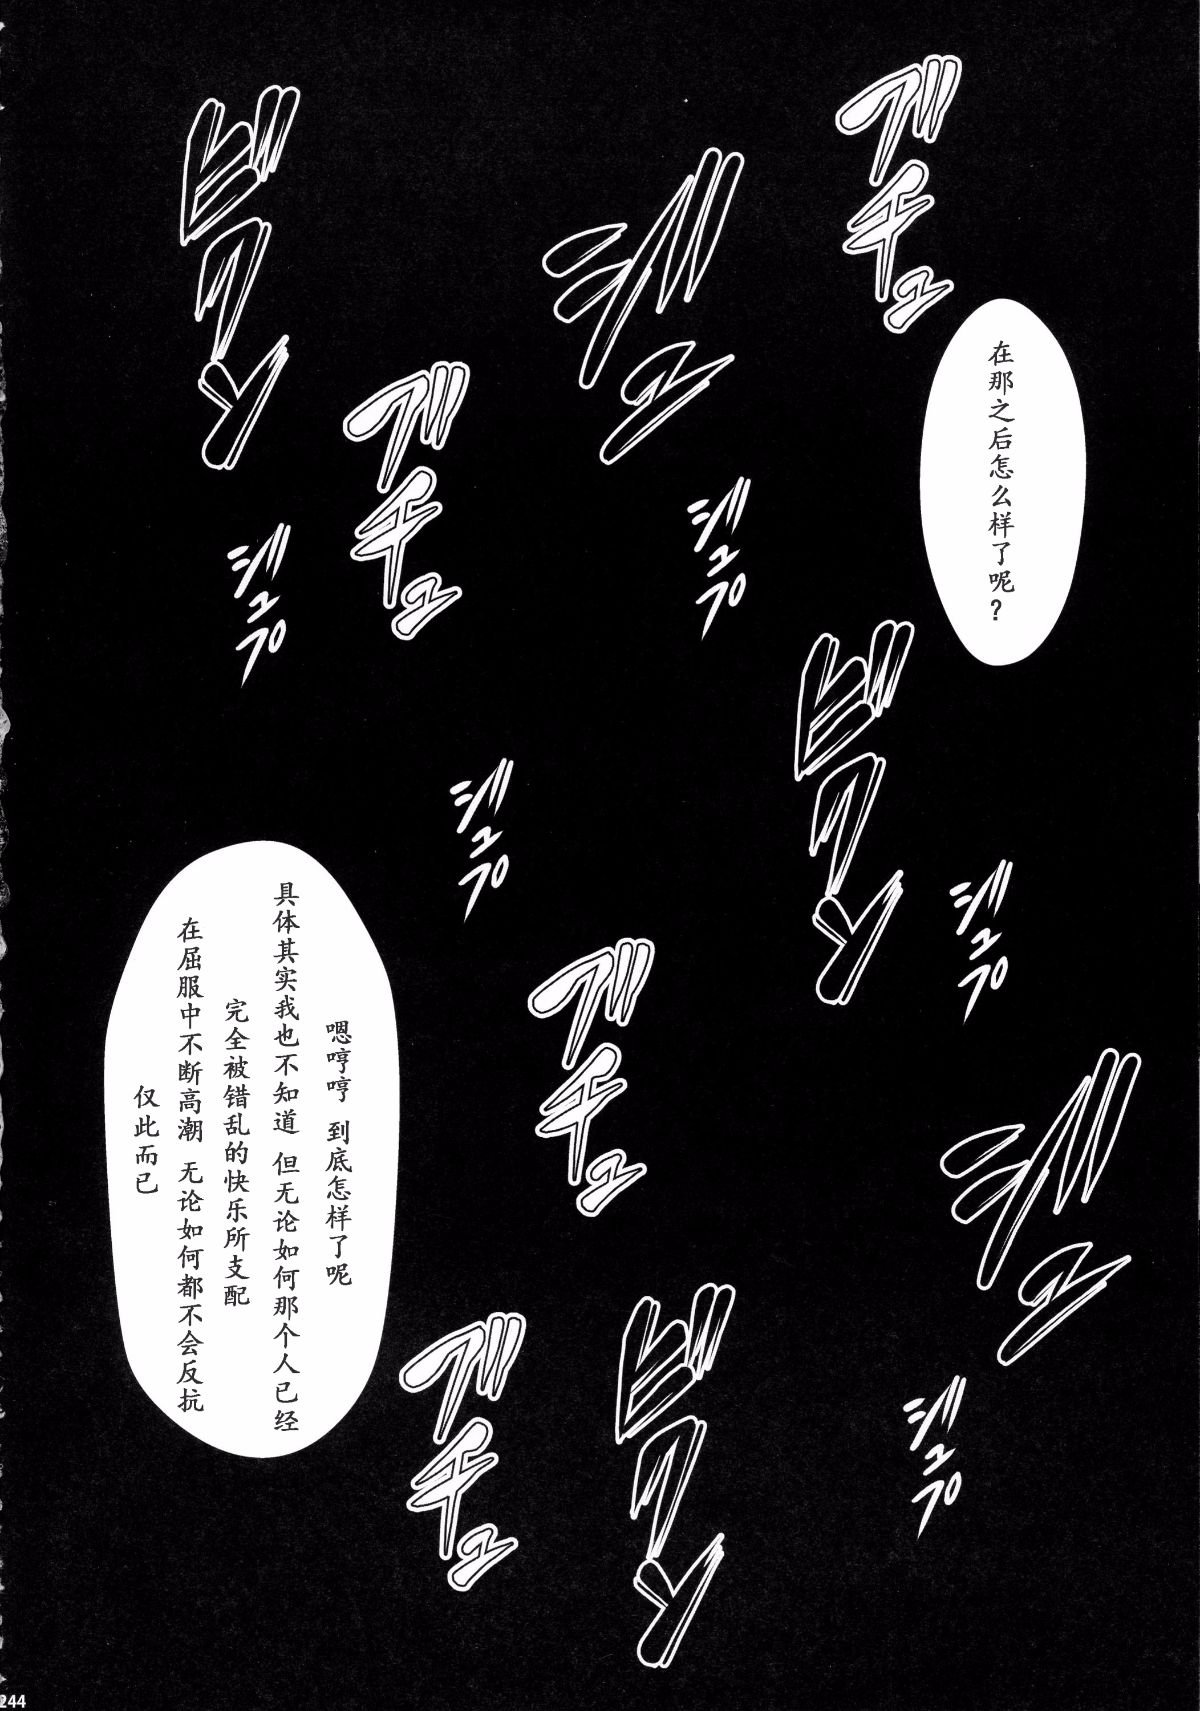 ゲチュ
ジュ
ブブッ
在那之后怎么样了呢？
ゲチュ
ジュプ
ジュプ
ジュプ
ジュプ
嗯哼哼 到底怎样了呢
具体其实我也不知道 但无论如何那个人已经
完全被错乱的快乐所支配
在屈服中不断高潮 无论如何都不会反抗
仅此而已
ゲチュ
ジュ
ゲチュ
ジュプ
244